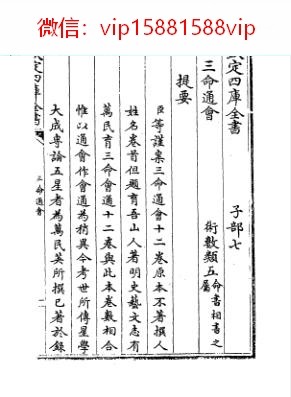 微信：vip15881588vip
欽定四庫全書　　子部七
三命通會　　術數類五命書相書之屬
提要
臣等謹案三命通會十二卷原本不著撰人
姓名卷首但題育吾山人著明史藝文志有
萬民育三命會通十二卷與此本卷數相合
惟以通會作會通為稍異今考世所傳星學
大成專論五星者為萬民英所撰已著於錄
定四庫全書
三命通會
一